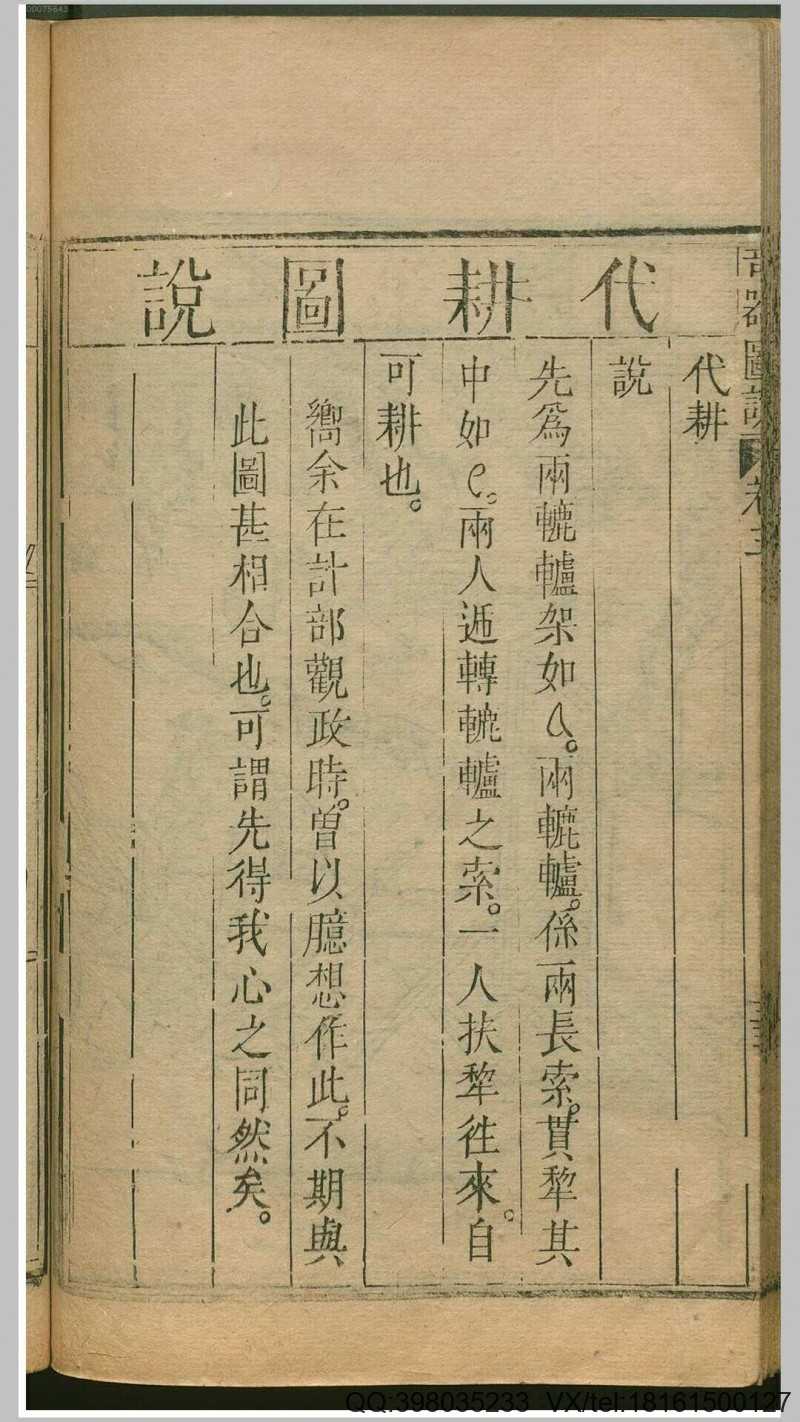 00075643
奇器圖說
卷三
代耕圖說
代耕
說
先爲兩轆轤架如a。兩轆轤。係兩長索。貫犂其
中如e。兩人遞轉轆轤之索。一人扶犂徃來。自
可耕也。
嚮余在計部觀政時。曽以臆想作此。不期與
此圖甚相合也。可謂先得我心之同然矣。
QQ:398035233 VX/tel:18161500127